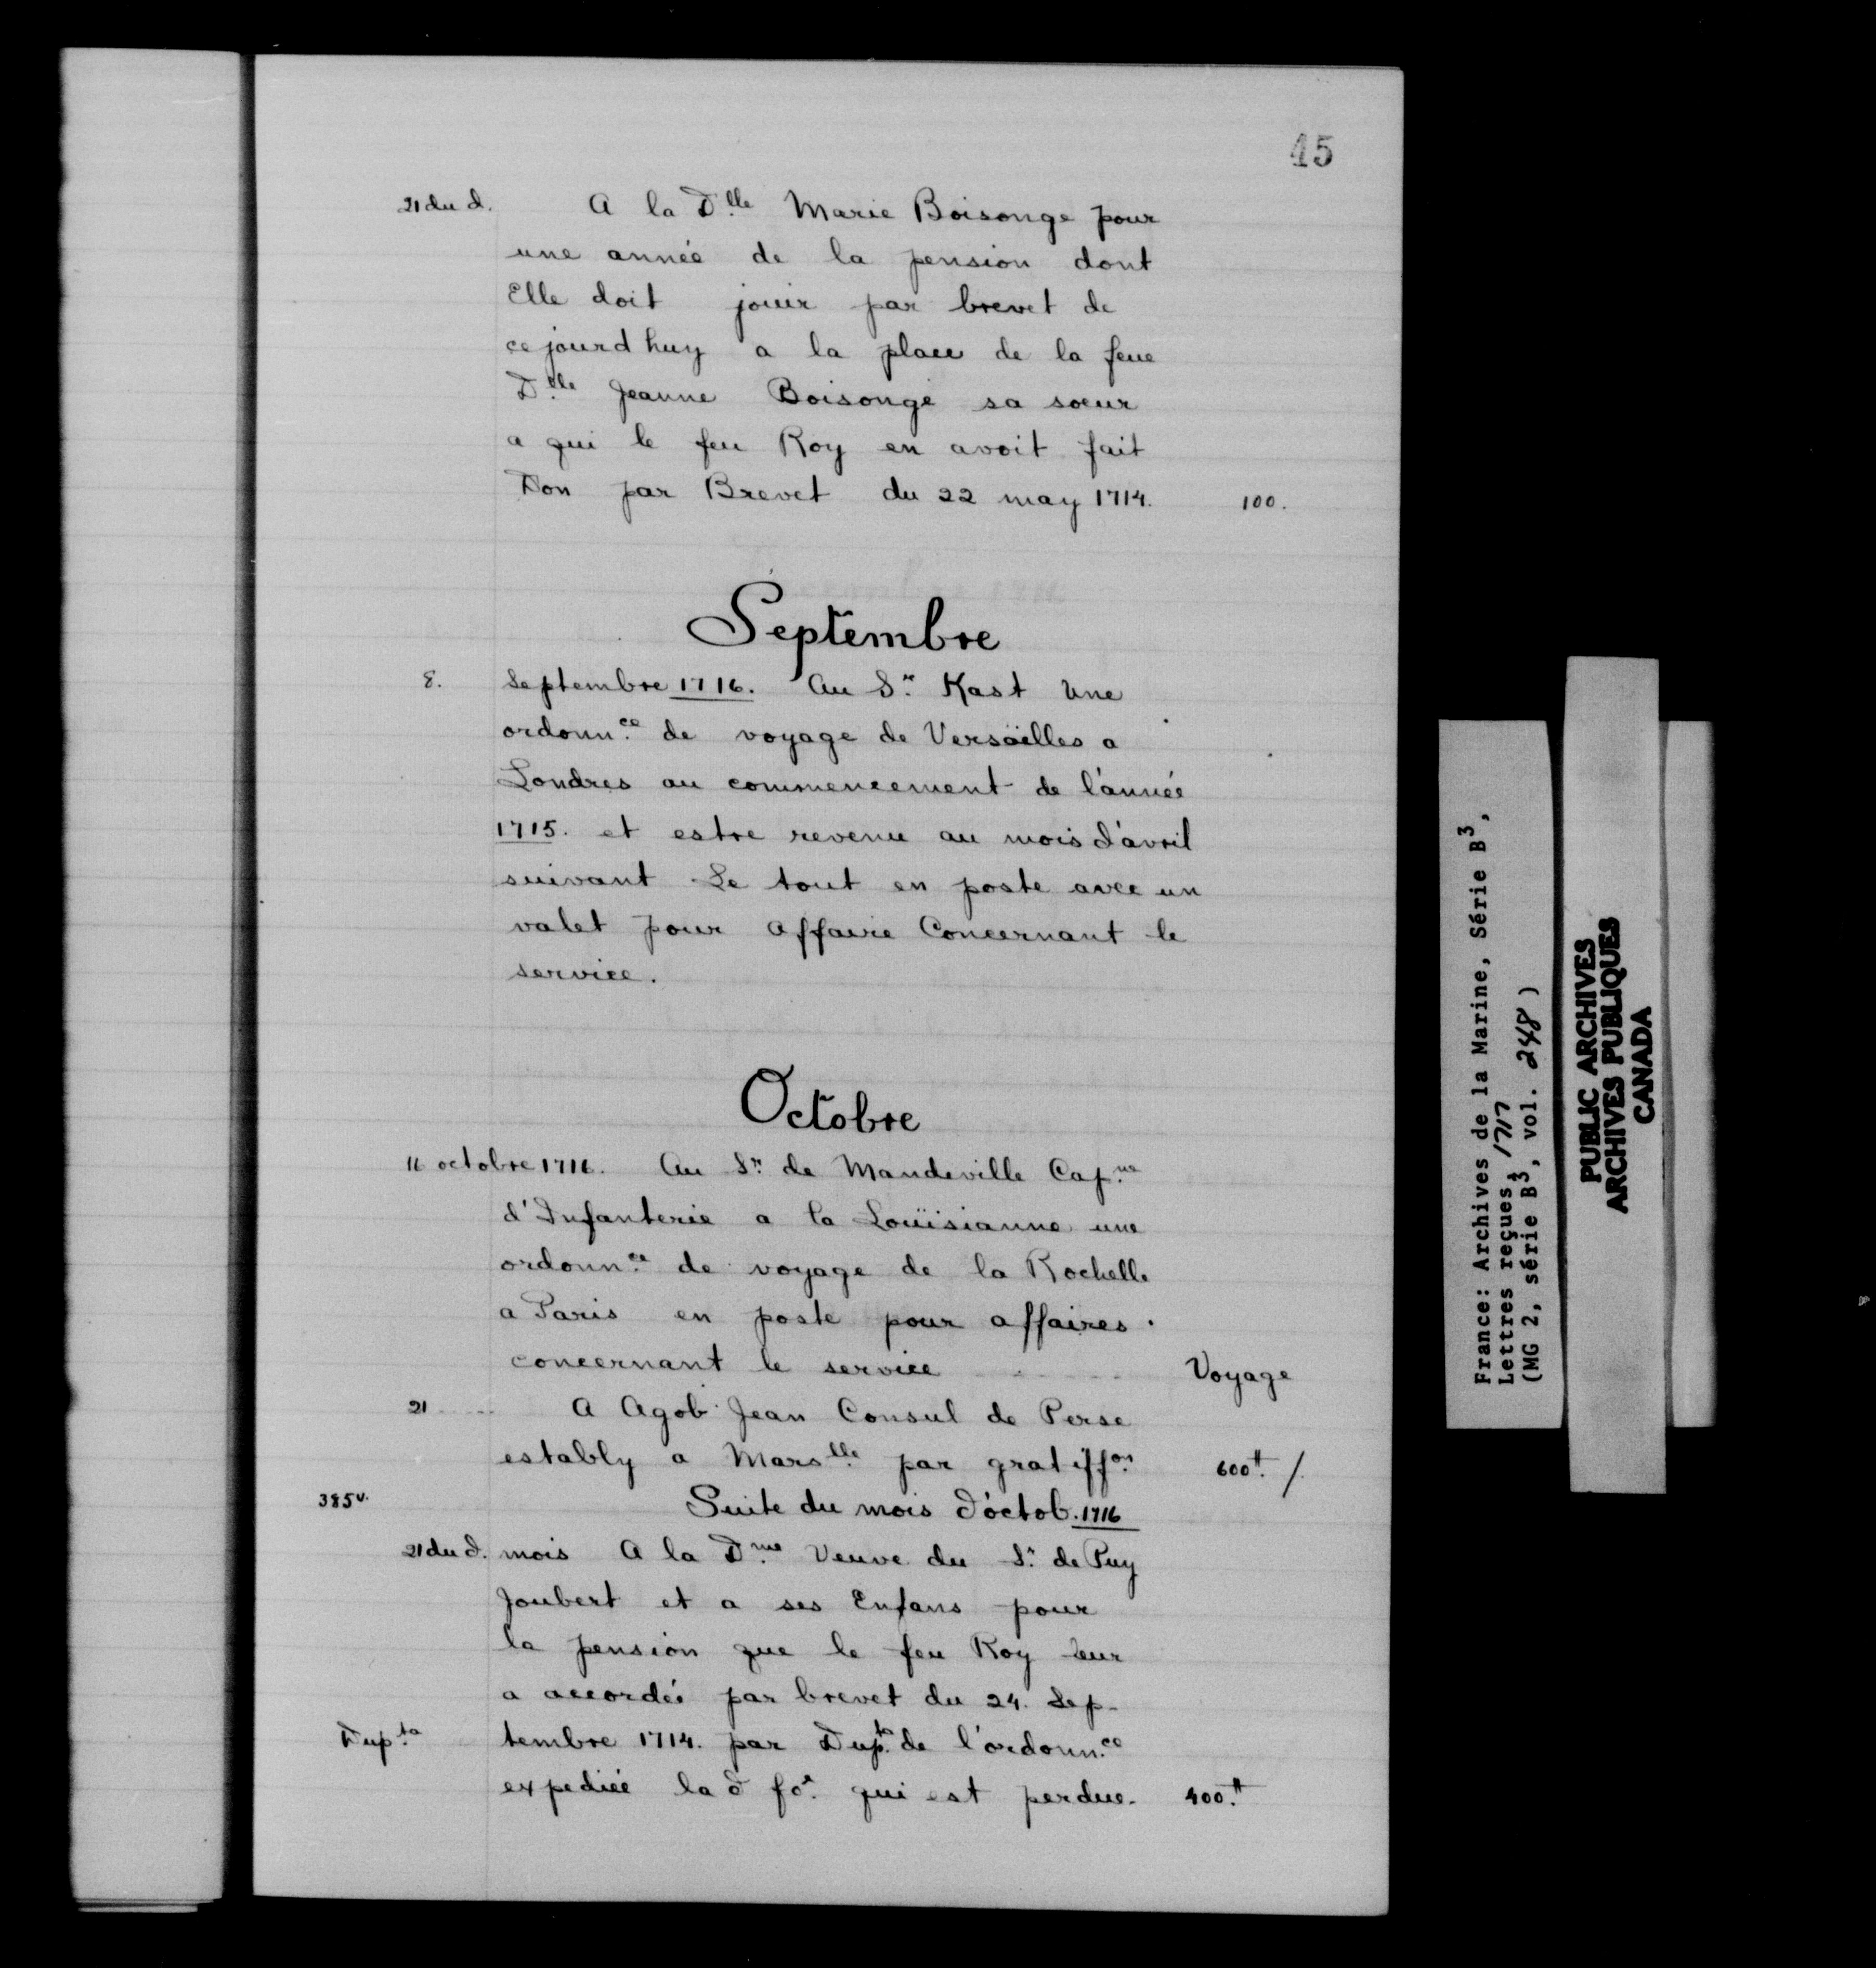 45
21 du d. A la D.lle Marie Boisonge pour
une année de la pension dont
Elle doit jouir par brevet de
cejourdhuy a la place de la feue
D.lle Jeanne Boisonge sa soeur
a qui le feu Roy en avoit fait
Don par Brevet du 22 may 1714. 100.
Septembre
8. Septembre 1716. Au S.r Kast Une
ordonn.ce de voyage de Versailles a
Londres au commencement de l'année
1715. et estre revenu au mois d'avril
suivant Le tout en poste avec un
valet pour Affaire Concernant le
service.
Octobre
16 octobre 1716. Au S.r de Mandeville Cap.ne
d'Infanterie a la Louïsianne une
ordonn.ce de voyage de la Rochelle
a Paris en poste pour affaires.
concernant le service Voyage
21 A Agob Jean Consul de Perse
estably a Mars.lle par gratiff.on 600.tt /.
385v. Suite du mois d'octob. 1716
21 du d. mois A la D.me Veuve du S.r de Puy
Joubert et a ses Enfans pour
la pension que le feu Roy leur
a accordée par brevet du 24. Sep-
Dup.ta tembre 1714. par Dup.ta de l'ordonn.ce
expediée la d. qui est perdue. 400.tt
France: Archives de la Marine, Série B3,
Lettres reçues, 1717
(MG 2, série B3, vol. 248)
PUBLIC ARCHIVES
ARCHIVES PUBLIQUES
CANADA